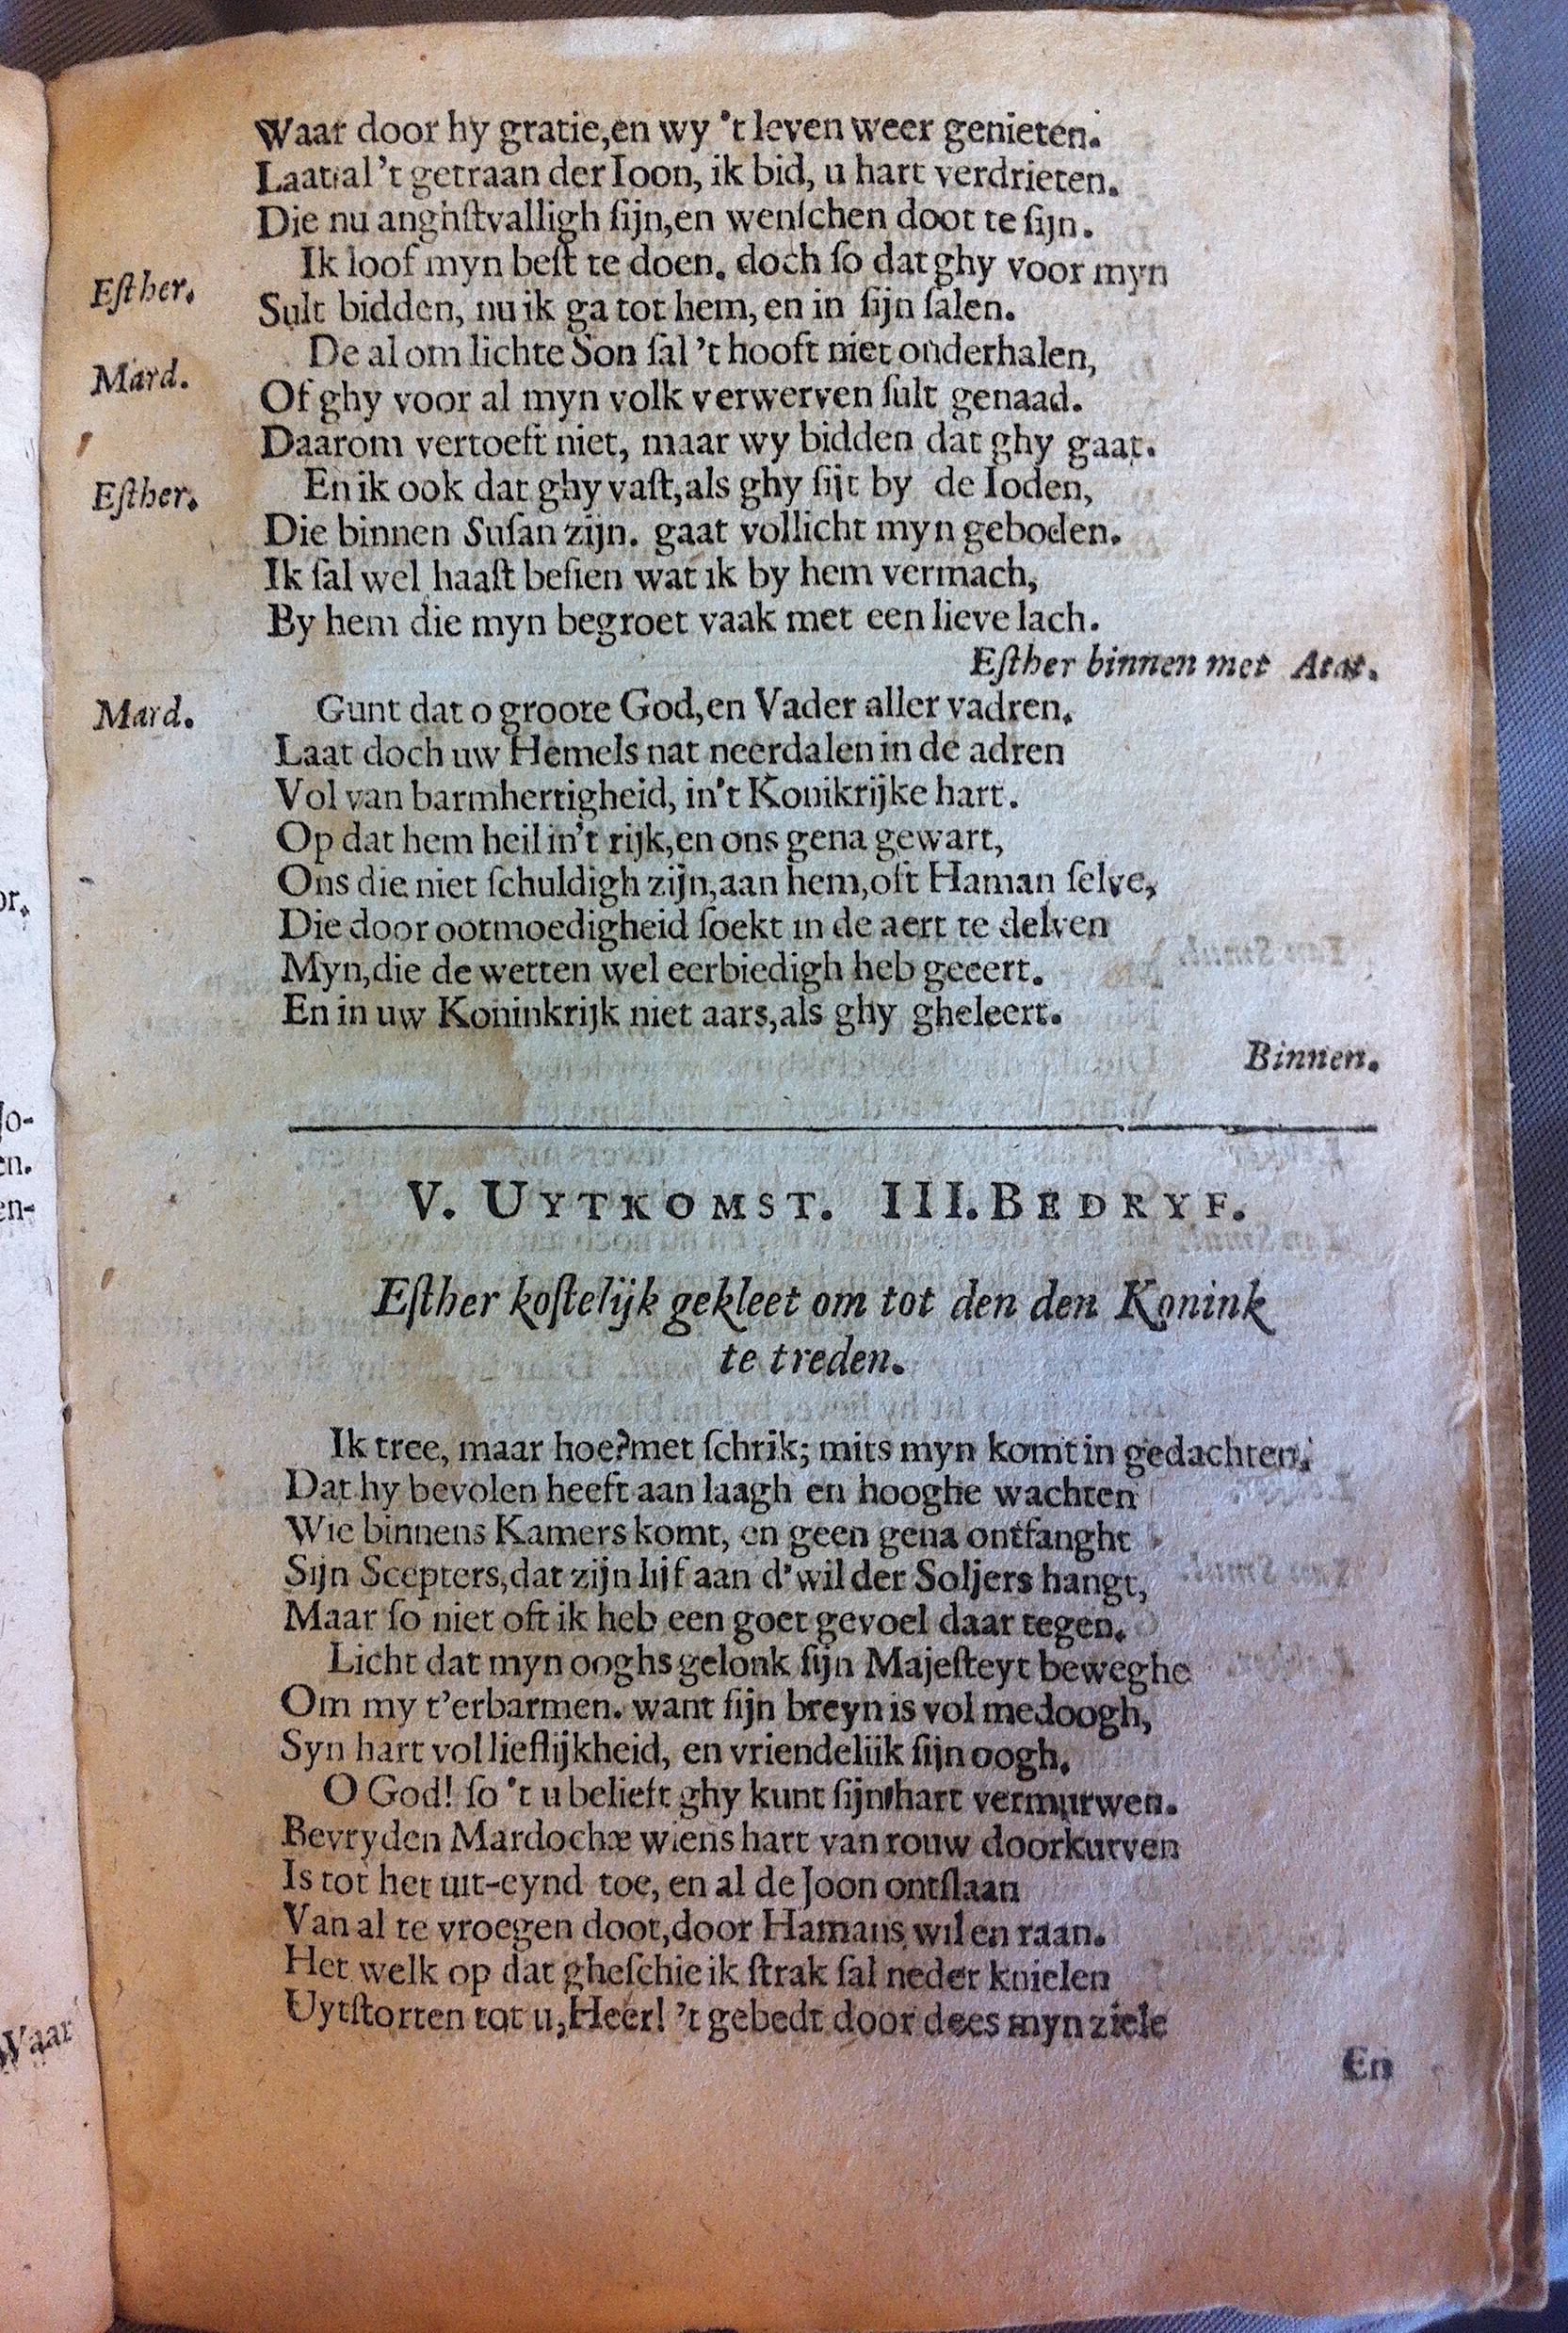 Waar door hy gratie,en wy 't leven weer genieten.
Laat al 't getraan der Ioon, ik bid, u hart verdrieten.
Die nu anghſtvalligh ſijn,en wenſchen doot te ſijn.
Eſther. Ik loof myn beſt te doen. doch ſo dat ghy voor myn
Sult bidden, nu ik ga tot hem, en in ſijn ſalen.
Mard. De al om lichte Son ſal 't hooft niet onderhalen,
Of ghy voor al myn volk verwerven ſult genaad.
Daarom vertoeft niet, maar wy bidden dat ghy gaat.
Eſther. En ik ook dat ghy vaſt,als ghy ſijt by de Ioden,
Die binnen Suſan zijn. gaat vollicht myn geboden.
Ik ſal wel haaſt beſien wat ik by hem vermach,
By hem die myn begroet vaak met een lieve lach.
Eſther binnen met Atat.
Mard. Gunt dat o groote God,en Vader aller vadren.
Laat doch uw Hemels nat neerdalen in de adren
Vol van barmhertigheid, in't Konikrijke hart.
Op dat hem heil in't rijk,en ons gena gewart,
Ons die niet ſchuldigh zijn,aan hem,oft Haman ſelve,
Die door ootmoedigheid ſoekt in de aert te delven
Myn,die de wetten wel eerbiedigh heb geeert.
En in uw Koninkrijk niet aars,als ghy gheleert.
Binnen.
V. UYTKOMST. III. BEDRYF.
Eſther koſtelijk gekleet om tot den den Konink
te treden.
Ik tree, maar hoe?met ſchrik; mits myn komt in gedachten.
Dat hy bevolen heeft aan laagh en hooghe wachten
Wie binnens Kamers komt, en geen gena ontfanght
Sijn Scepters,dat zijn lijf aan d'wil der Soljers hangt,
Maar ſo niet oft ik heb een goet gevoel daar tegen.
Licht dat myn ooghs gelonk ſijn Majeſteyt beweghe
Om my t'erbarmen. want ſijn breyn is vol medoogh,
Syn hart vol lieflijkheid, en vriendeliik ſijn oogh.
O God! ſo 't u belieft ghy kunt ſijn hart vermurwen.
Bevryden Mardochæ wiens hart van rouw doorkurven
Is tot het uit-eynd toe, en al de Joon ontſlaan
Van al te vroegen doot,door Hamans wil en raan.
Het welk op dat gheſchie ik ſtrak ſal neder knielen
Uytſtorten tot u,Heer! 't gebedt door dees myn ziele
En
or.
Jo-
en.
en-
Waar